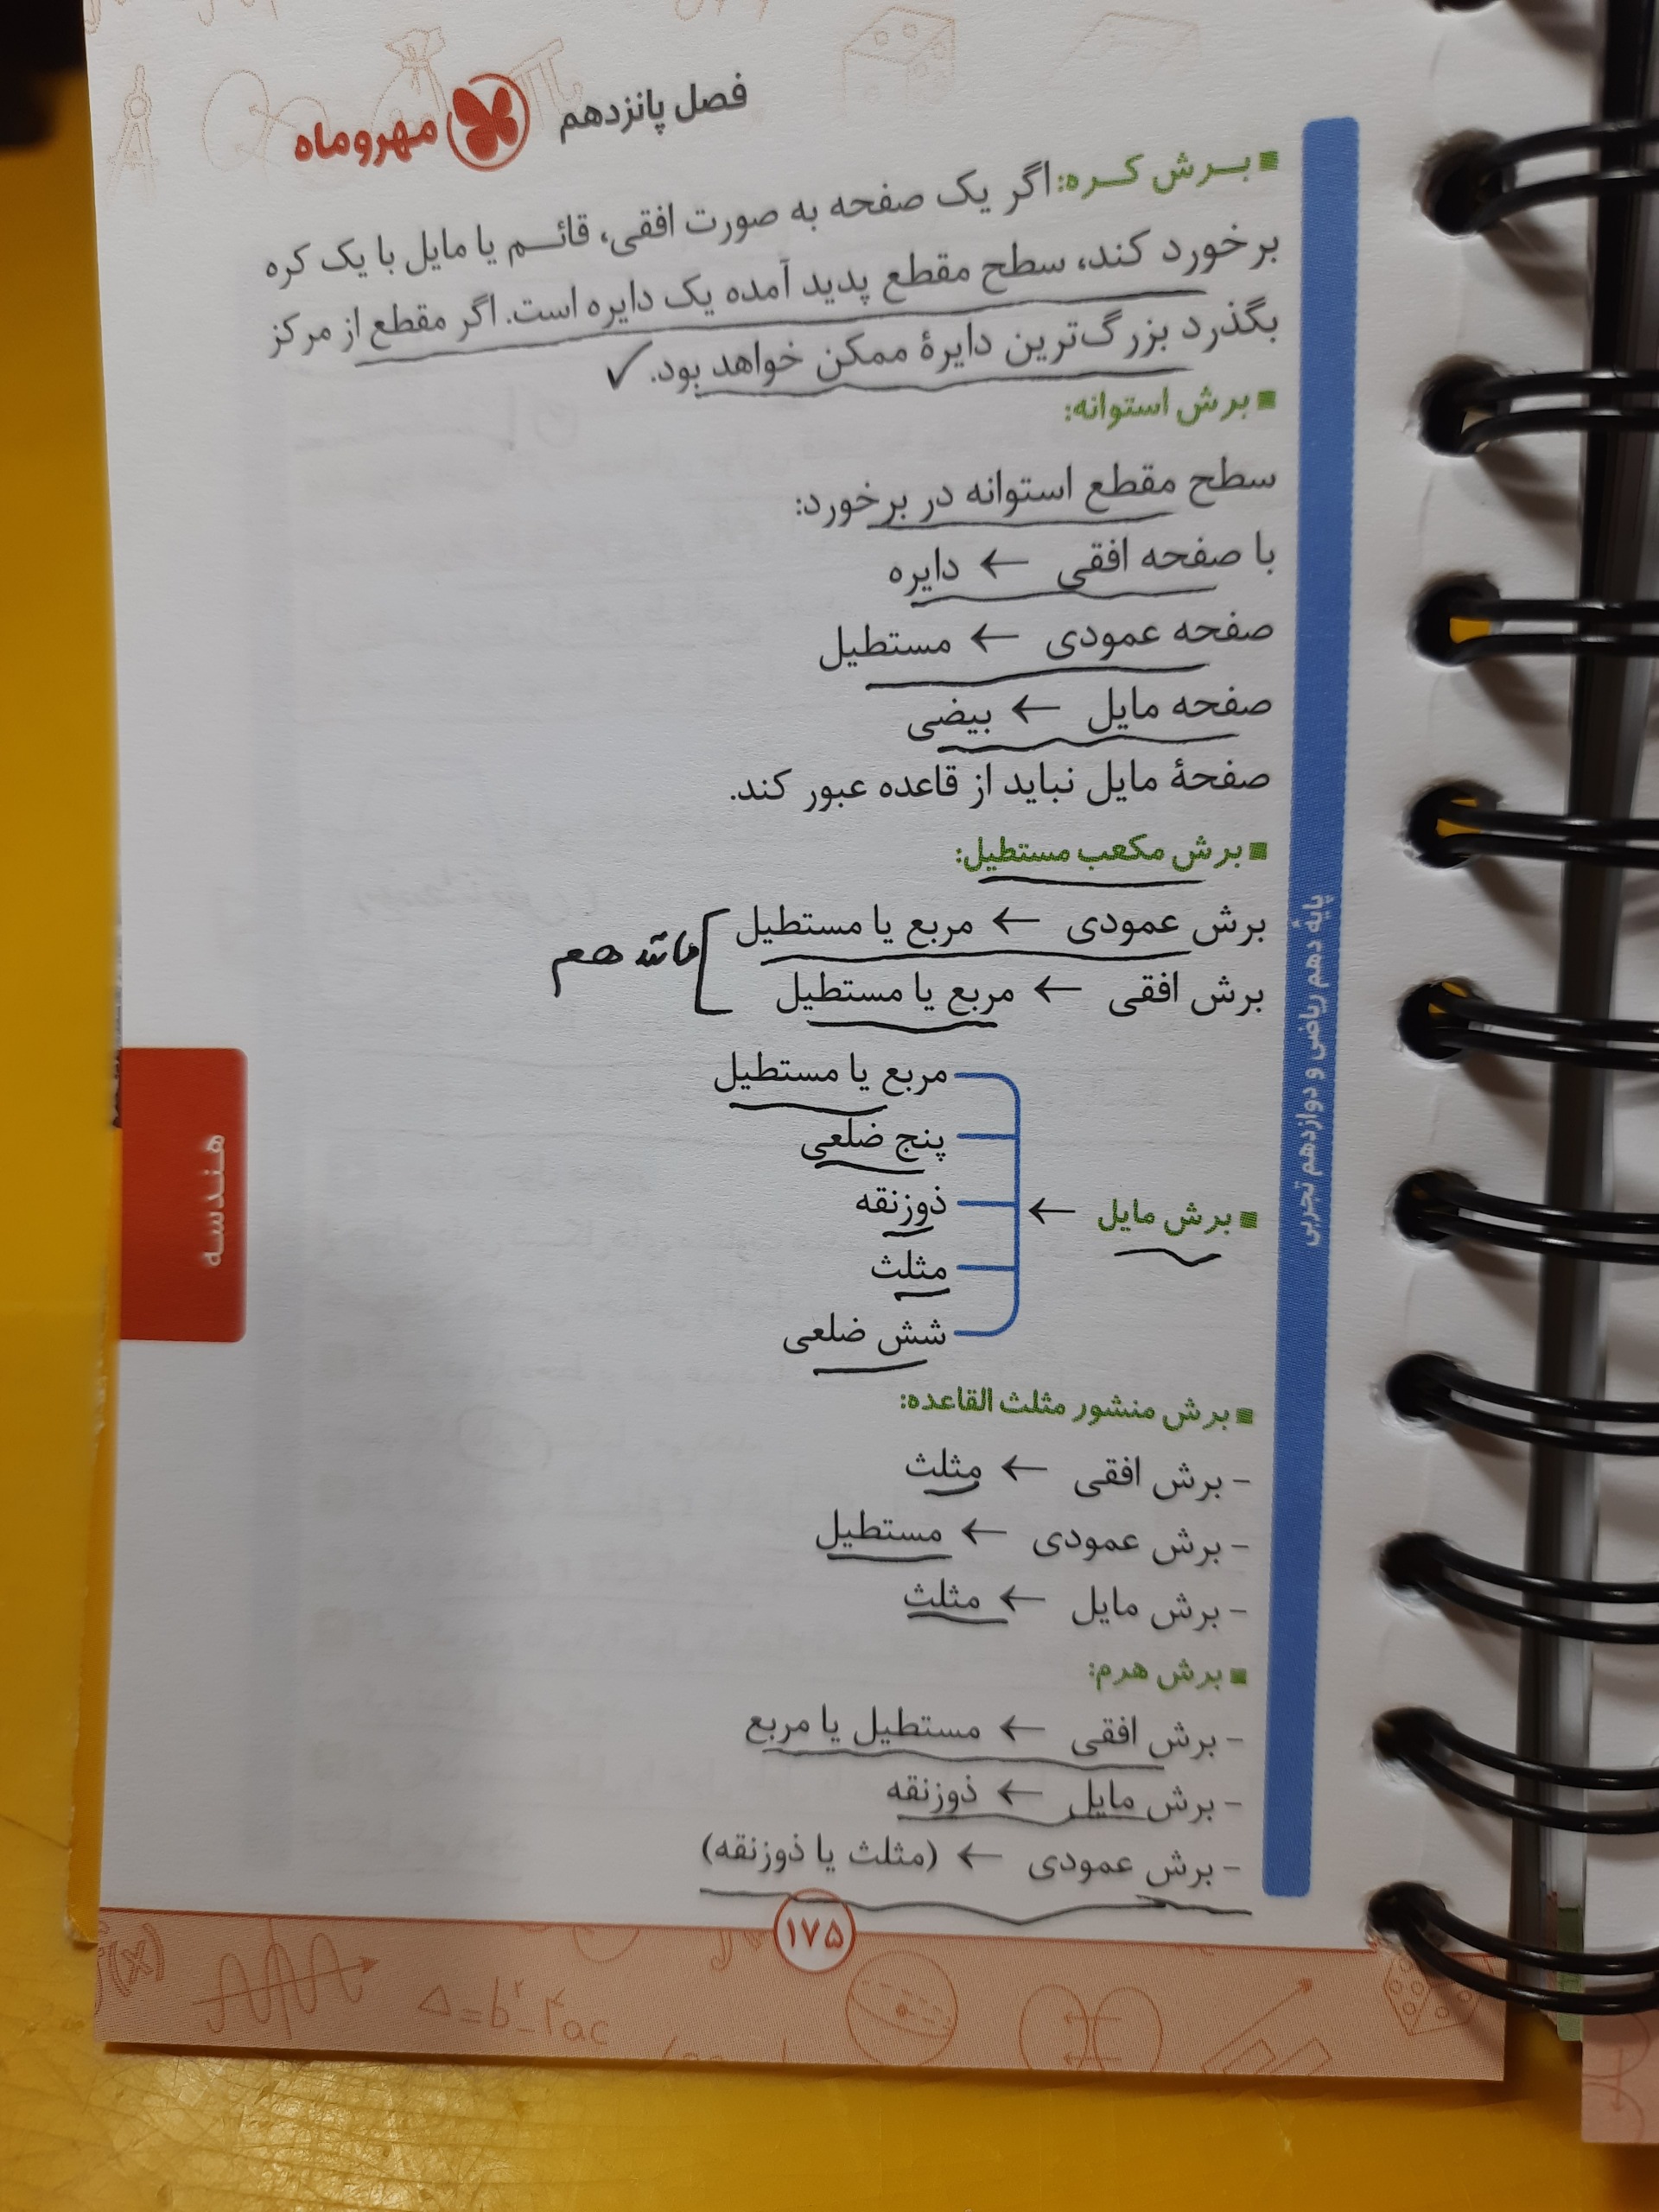 فصل پانزدهم
مهروماه
برش کره: اگر یک صفحه به صورت افقی، قائم یا مایل با یک کره
برخورد کند، سطح مقطع پدید آمده یک دایره است. اگر مقطع از مرکز
بگذرد بزرگ‌ترین دایرهٔ ممکن خواهد بود.
برش استوانه:
سطح مقطع استوانه در برخورد:
با صفحه افقی ← دایره
صفحه عمودی ← مستطیل
صفحه مایل ← بیضی
صفحهٔ مایل نباید از قاعده عبور کند.
برش مکعب مستطیل:
برش عمودی ← مربع یا مستطیل
برش افقی ← مربع یا مستطیل
مانند هم
برش مایل ←
مربع یا مستطیل
پنج ضلعی
ذوزنقه
مثلث
شش ضلعی
برش منشور مثلث القاعده:
- برش افقی ← مثلث
- برش عمودی ← مستطیل
- برش مایل ← مثلث
برش هرم:
- برش افقی ← مستطیل یا مربع
- برش مایل ← ذوزنقه
- برش عمودی ← (مثلث یا ذوزنقه)
پایهٔ دهم ریاضی و دوازدهم تجربی
هندسه
۱۷۵
Δ=b²-۴ac